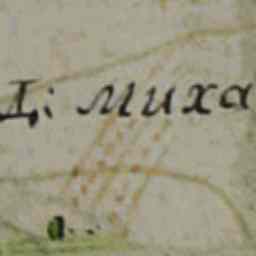 Д: миха